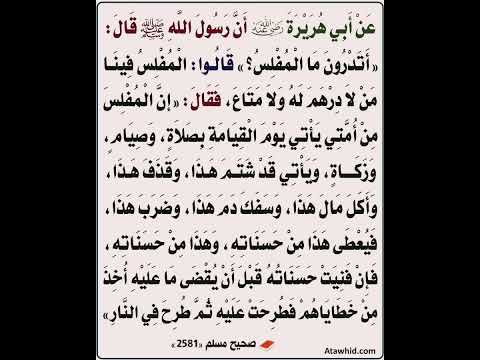 عَنْ أَبِي هُرَيْرَةَ رضي الله عنه أَنَّ رَسُولَ اللَّهِ ﷺ قَالَ :
« أَتَدْرُونَ مَا الْمُفْلِسُ؟ » قَالُوا : الْمُفْلِسُ فِينَا
مَنْ لا دِرْهَمَ لَهُ ولا مَتَاعَ، فقَالَ : « إنَّ الْمُفْلِسَ
مِنْ أُمَّتِي يَأْتي يَوْمَ القِيامَةِ بِصَلاَةٍ، وَصِيَامٍ،
وَزَكَــاةٍ، وَيَأْتِي قَدْ شَتَمَ هَـذا، وَقَذَفَ هَـذا،
وَأَكَلَ مالَ هَذَا، وَسَفَكَ دم هَذَا، وضَرَبَ هَذَا،
فيُعْطَى هَذَا مِنْ حَسَنَاتِهِ، وَهَذا مِنْ حَسَنَاتِهِ،
فَإنْ فَنِيَتْ حَسَنَاتُهُ قَبْلَ أَنْ يُقْضَى ما عَلَيْهِ أُخِذَ
مِنْ خَطَايَاهُمْ فَطُرِحَتْ عَلَيْهِ ثُمَّ طُرِحَ فِي النَّارِ»
صحيح مسلم «2581»
Atawhid.com